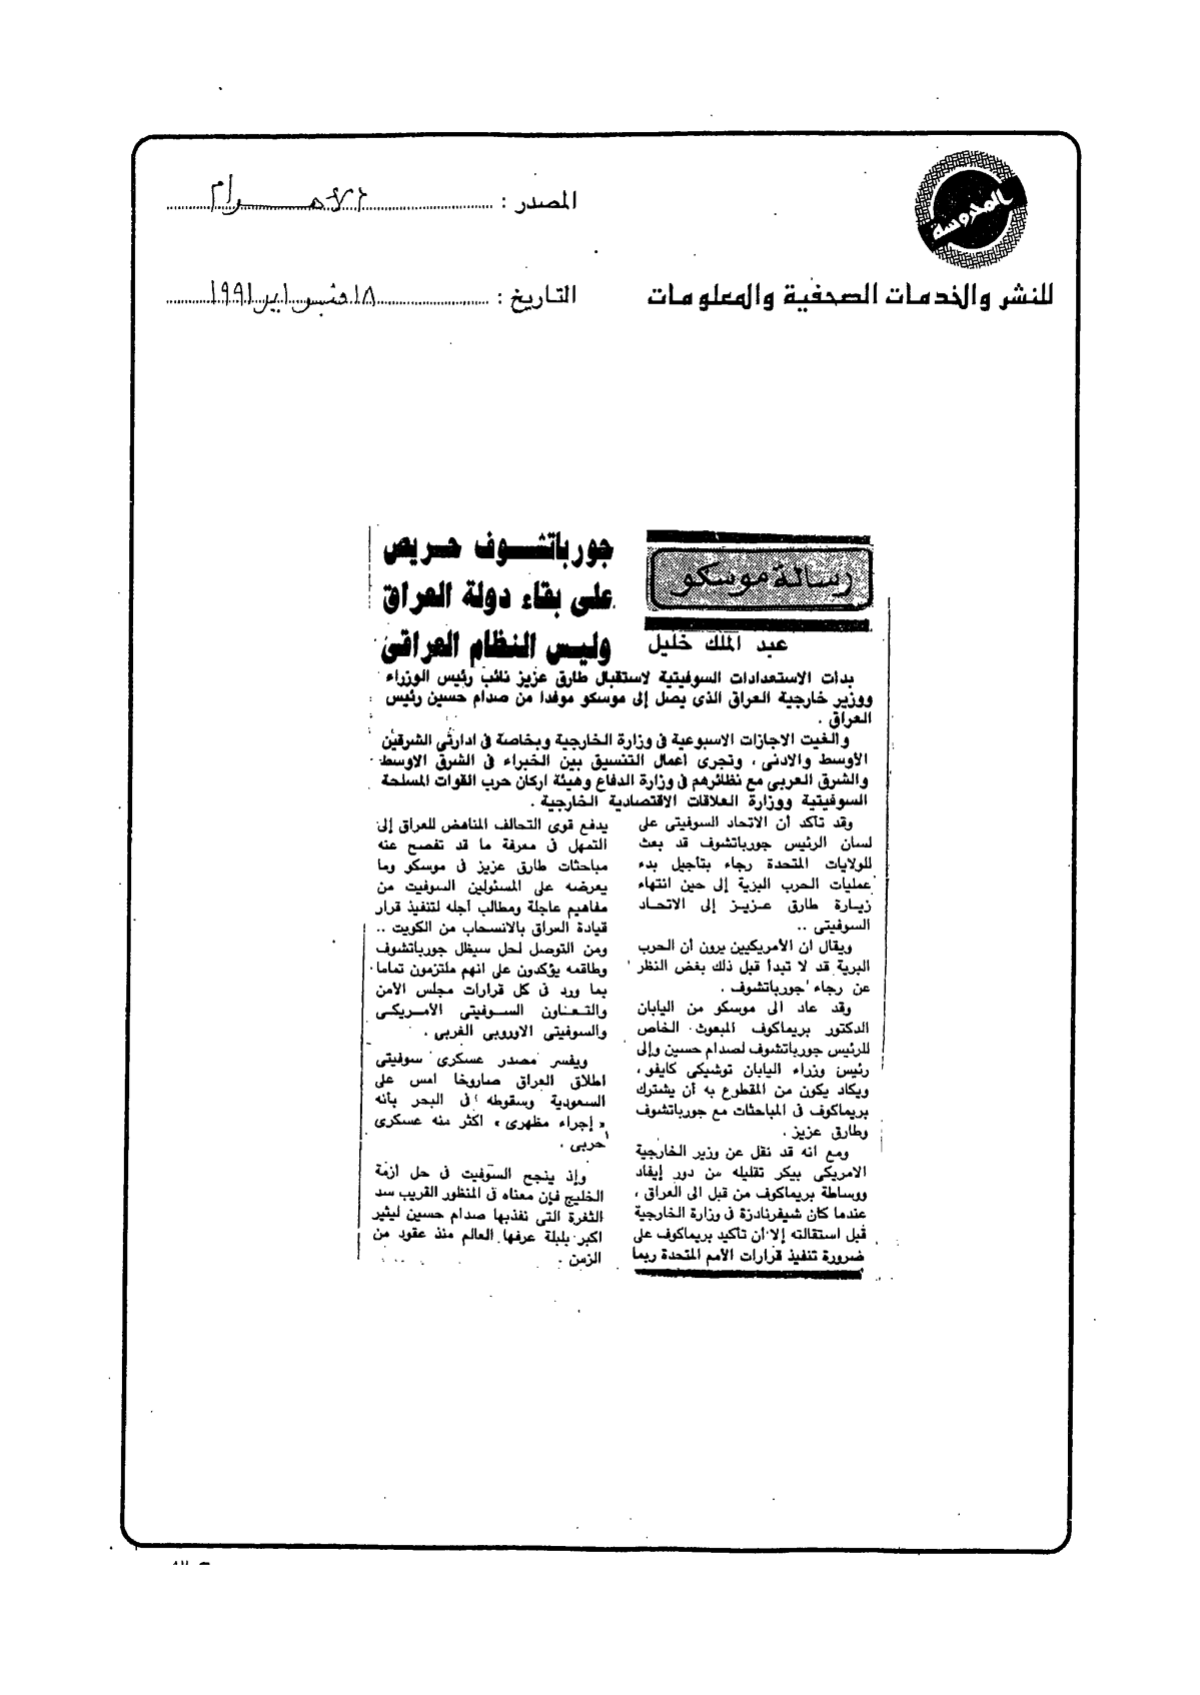 المدروسة
للنشر والخدمات الصحفية والمعلومات
المصدر : الأهرام
التاريخ : ١٨ فبراير ١٩٩١
رسالة موسكو
عبد الملك خليل
جورباتشوف حريص
على بقاء دولة العراق
وليس النظام العراقى
بدأت الاستعدادات السوفيتية لاستقبال طارق عزيز نائب رئيس الوزراء
ووزير خارجية العراق الذى يصل إلى موسكو موفدا من صدام حسين رئيس
العراق .
والغيت الاجازات الاسبوعية فى وزارة الخارجية وبخاصة فى ادارتى الشرقين
الأوسط والادنى ، وتجرى أعمال التنسيق بين الخبراء فى الشرق الاوسط
والشرق العربى مع نظائرهم فى وزارة الدفاع وهيئة اركان حرب القوات المسلحة
السوفيتية ووزارة العلاقات الاقتصادية الخارجية .
وقد تأكد أن الاتحاد السوفيتى على
لسان الرئيس جورباتشوف قد بعث
للولايات المتحدة رجاء بتأجيل بدء
عمليات الحرب البرية إلى حين انتهاء
زيارة طارق عزيز إلى الاتحاد
السوفيتى ..
ويقال ان الأمريكيين يرون أن الحرب
البرية قد لا تبدأ قبل ذلك بغض النظر
عن رجاء جورباتشوف .
وقد عاد الى موسكو من اليابان
الدكتور بريماكوف المبعوث الخاص
للرئيس جورباتشوف لصدام حسين وإلى
رئيس وزراء اليابان توشيكى كايفو ،
ويكاد يكون من المقطوع به أن يشترك
بريماكوف فى المباحثات مع جورباتشوف
وطارق عزيز .
ومع انه قد نقل عن وزير الخارجية
الامريكى بيكر تقليله من دور إيفاد
ووساطة بريماكوف من قبل الى العراق ،
عندما كان شيفرنادزة فى وزارة الخارجية
قبل استقالته إلا أن تأكيد بريماكوف على
ضرورة تنفيذ قرارات الأمم المتحدة ربما
يدفع قوى التحالف المناهض للعراق إلى
التمهل فى معرفة ما قد تفصح عنه
مباحثات طارق عزيز فى موسكو وما
يعرضه على المسئولين السوفيت من
مفاهيم عاجلة ومطالب آجله لتنفيذ قرار
قيادة العراق بالانسحاب من الكويت ..
ومن التوصل لحل سيظل جورباتشوف
وطاقمه يؤكدون على انهم ملتزمون تماما
بما ورد فى كل قرارات مجلس الأمن
والتعاون السوفيتى الأمريكى
والسوفيتى الاوروبى الغربى .
ويفسر مصدر عسكرى سوفيتى
اطلاق العراق صاروخا امس على
السعودية وسقوطه فى البحر بأنه
« إجراء مظهرى » اكثر منه عسكرى
حربى .
وإذ ينجح السوفيت فى حل ازمة
الخليج فإن معناه فى المنظور القريب سد
الثغرة التى نفذبها صدام حسين ليثير
اكبر بلبلة عرفها العالم منذ عقود من
الزمن .